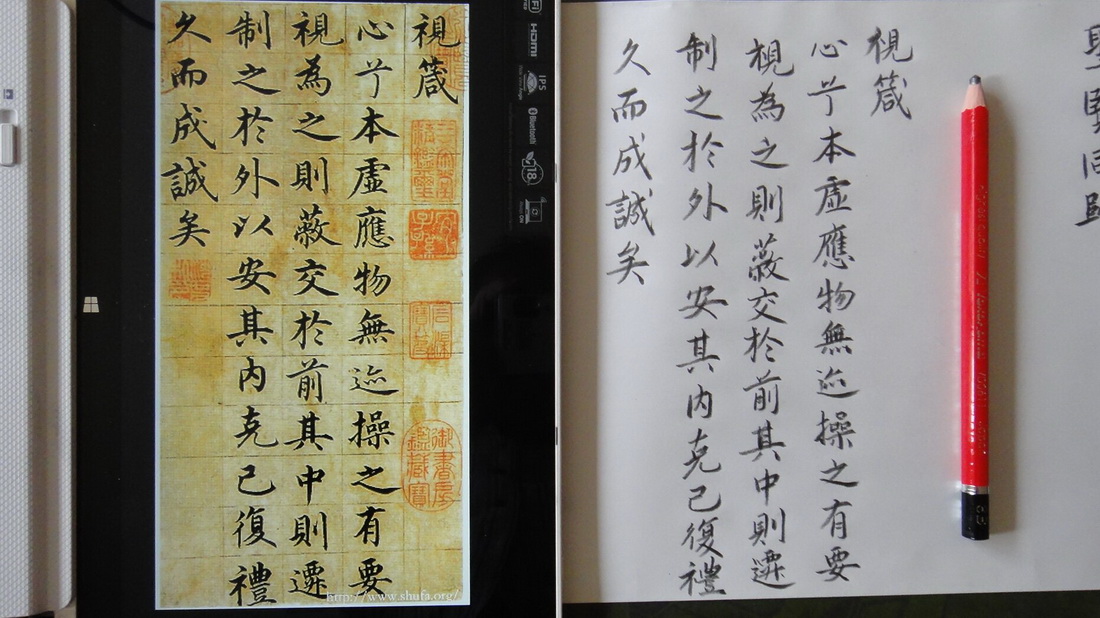 視箴
心兮本虛應物無迹操之有要
視為之則蔽交於前其中則遷
制之於外以安其内克己復禮
久而成誠矣
三希堂精鑑璽
宜子孫
石渠寶笈
御書房鑑藏寶
http://www.shufa.org/
HDMI
IPS
Bluetooth
聖賢同歸
視箴
心兮本虛應物無迹操之有要
視為之則蔽交於前其中則遷
制之於外以安其内克己復禮
久而成誠矣